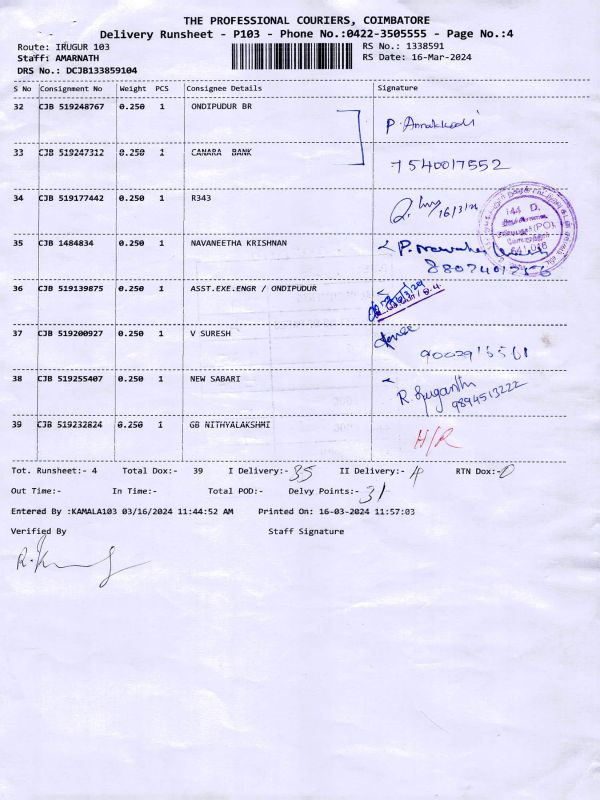 THE PROFESSIONAL COURIERS, COIMBATORE
Delivery Runsheet - P103 - Phone No.:0422-3505555 - Page No.:4
Route: IRUGUR 103 RS No.: 1338591
Staff: AMARNATH RS Date: 16-Mar-2024
DRS No.: DCJB133859104
S No Consignment No Weight PCS Consignee Details Signature
32 CJB 519248767 0.250 1 ONDIPUDUR BR
33 CJB 519247312 0.250 1 CANARA BANK 7540017552
34 CJB 519177442 0.250 1 R343
35 CJB 1484834 0.250 1 NAVANEETHA KRISHNAN
36 CJB 519139875 0.250 1 ASST.EXE.ENGR / ONDIPUDUR
37 CJB 519200927 0.250 1 V SURESH
38 CJB 519255407 0.250 1 NEW SABARI R. Suganthi 9894513222
39 CJB 519232824 0.250 1 GB NITHYALAKSHMI H/R
Tot. Runsheet:- 4 Total Dox:- 39 I Delivery:- 35 II Delivery:- 4 RTN Dox:- 0
Out Time:- In Time:- Total POD:- Delvy Points:- 31
Entered By :KAMALA103 03/16/2024 11:44:52 AM Printed On: 16-03-2024 11:57:03
Verified By Staff Signature